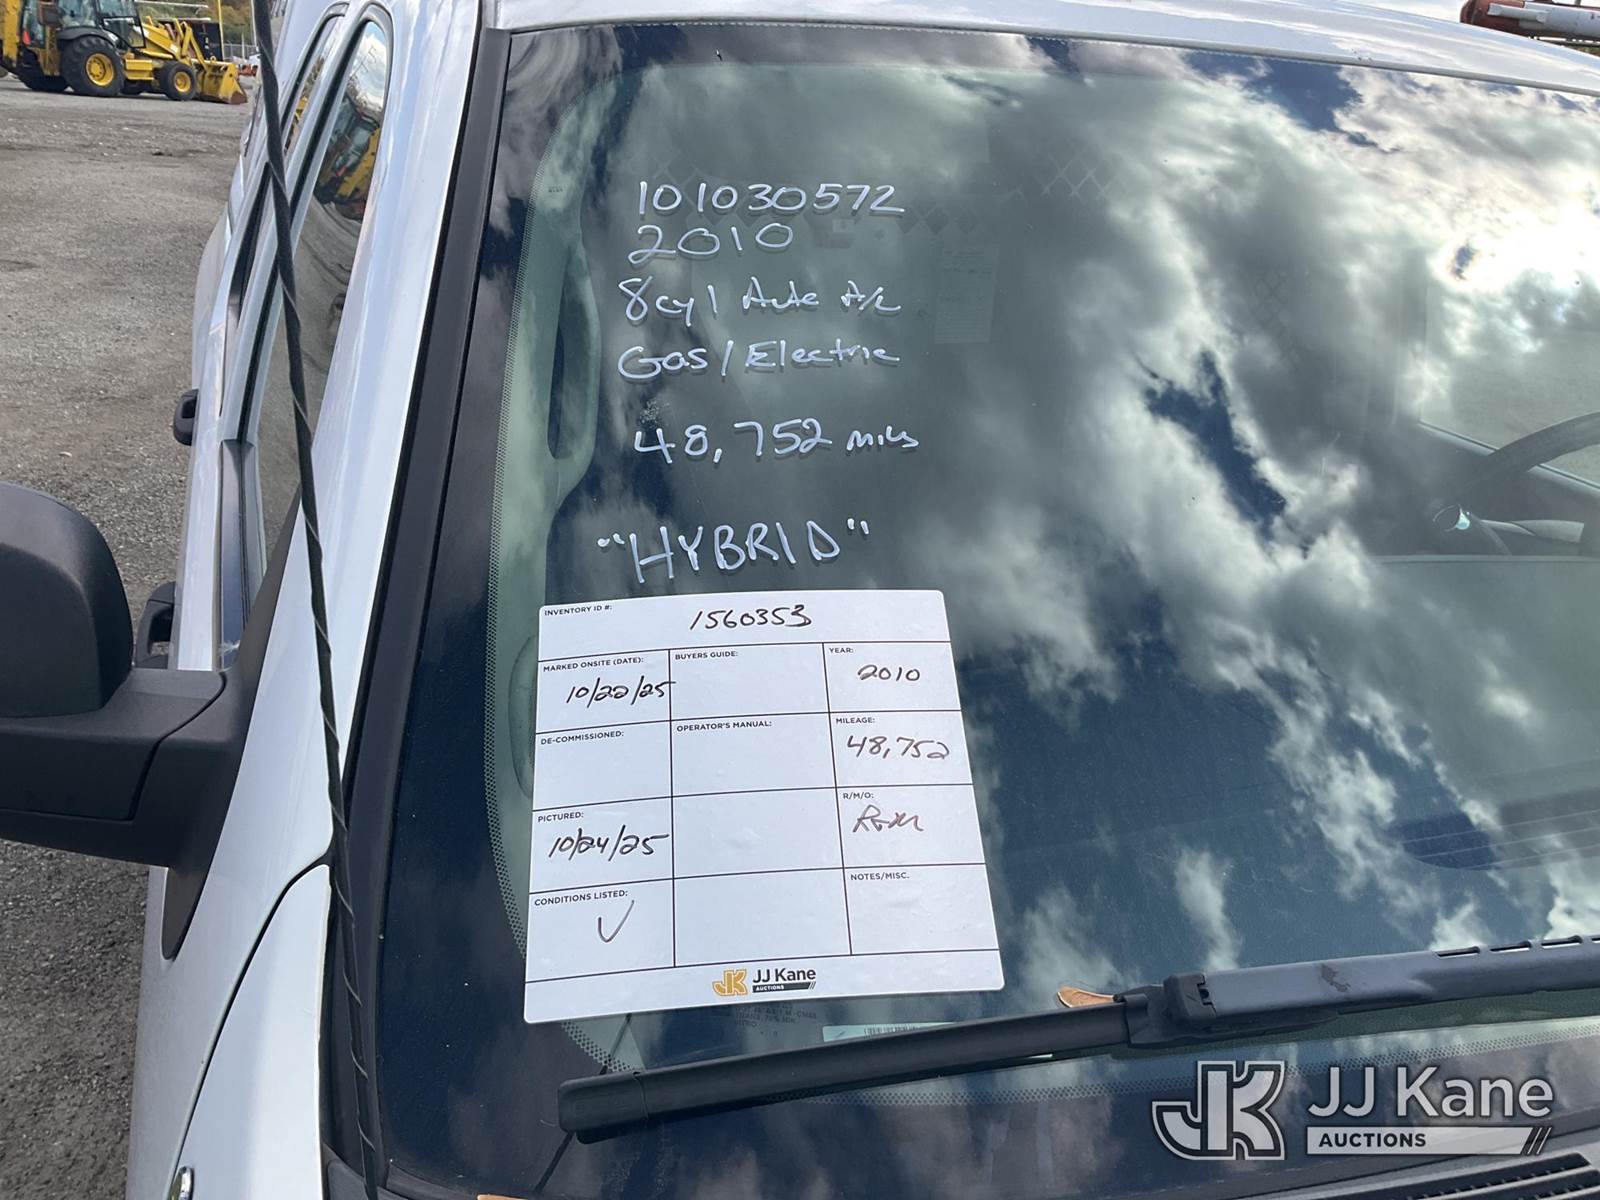 101030572
2010
8cyl Auto A/C
Gas/Electric
48,752 miles
"HYBRID"
INVENTORY ID #: 1560353
MARKED ONSITE (DATE): 10/22/25
BUYERS GUIDE:
YEAR: 2010
DE-COMMISSIONED:
OPERATOR'S MANUAL:
MILEAGE: 48,752
PICTURED: 10/24/25
R/M/O:
CONDITIONS LISTED: ✓
NOTES/MISC.
JK JJ Kane
AUCTIONS
JK JJ Kane
AUCTIONS